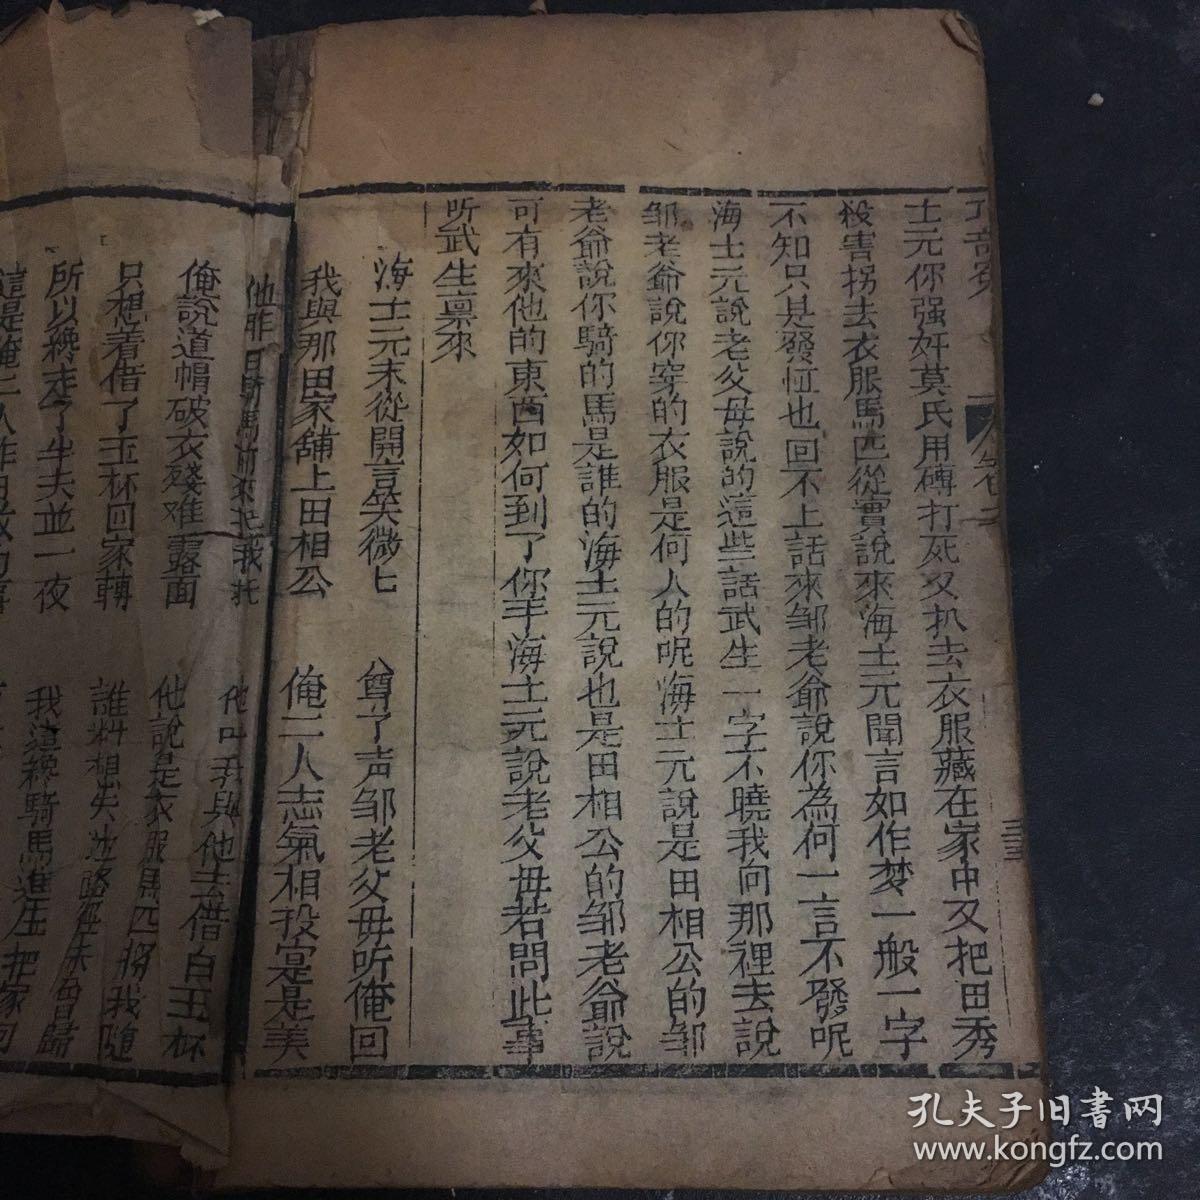 巧奇冤 卷二
士元你强奸莫氏用磚打死又扒去衣服藏在家中又把田秀
殺害拐去衣服馬匹從實說來海士元聞言如作梦一般一字
不知只是發怔也回不上話來邹老爺說你為何一言不發呢
海士元說老父母說的這些話武生一字不曉我向那裡去說
邹老爺說你穿的衣服是何人的呢海士元說是田相公的邹
老爺說你騎的馬是誰的海士元說也是田相公的邹老爺說
可有來他的東西如何到了你手海士元說老父母若問此事
听武生禀來
海士元未從開言笑微匕 尊了声邹老父母听俺回
我與那田家舖上田相公 俺二人志氣相投寔是美
他昨日騎馬前來把我托 他叫我與他去借白玉杯
俺說道帽破衣殘难露面 他說是衣服馬匹將我隨
只想着借了玉杯回家轉 誰料想失迷路徑未曾歸
所以纔走了半夫並一夜 我這纔騎馬進庄把家回
這是俺二人昨日